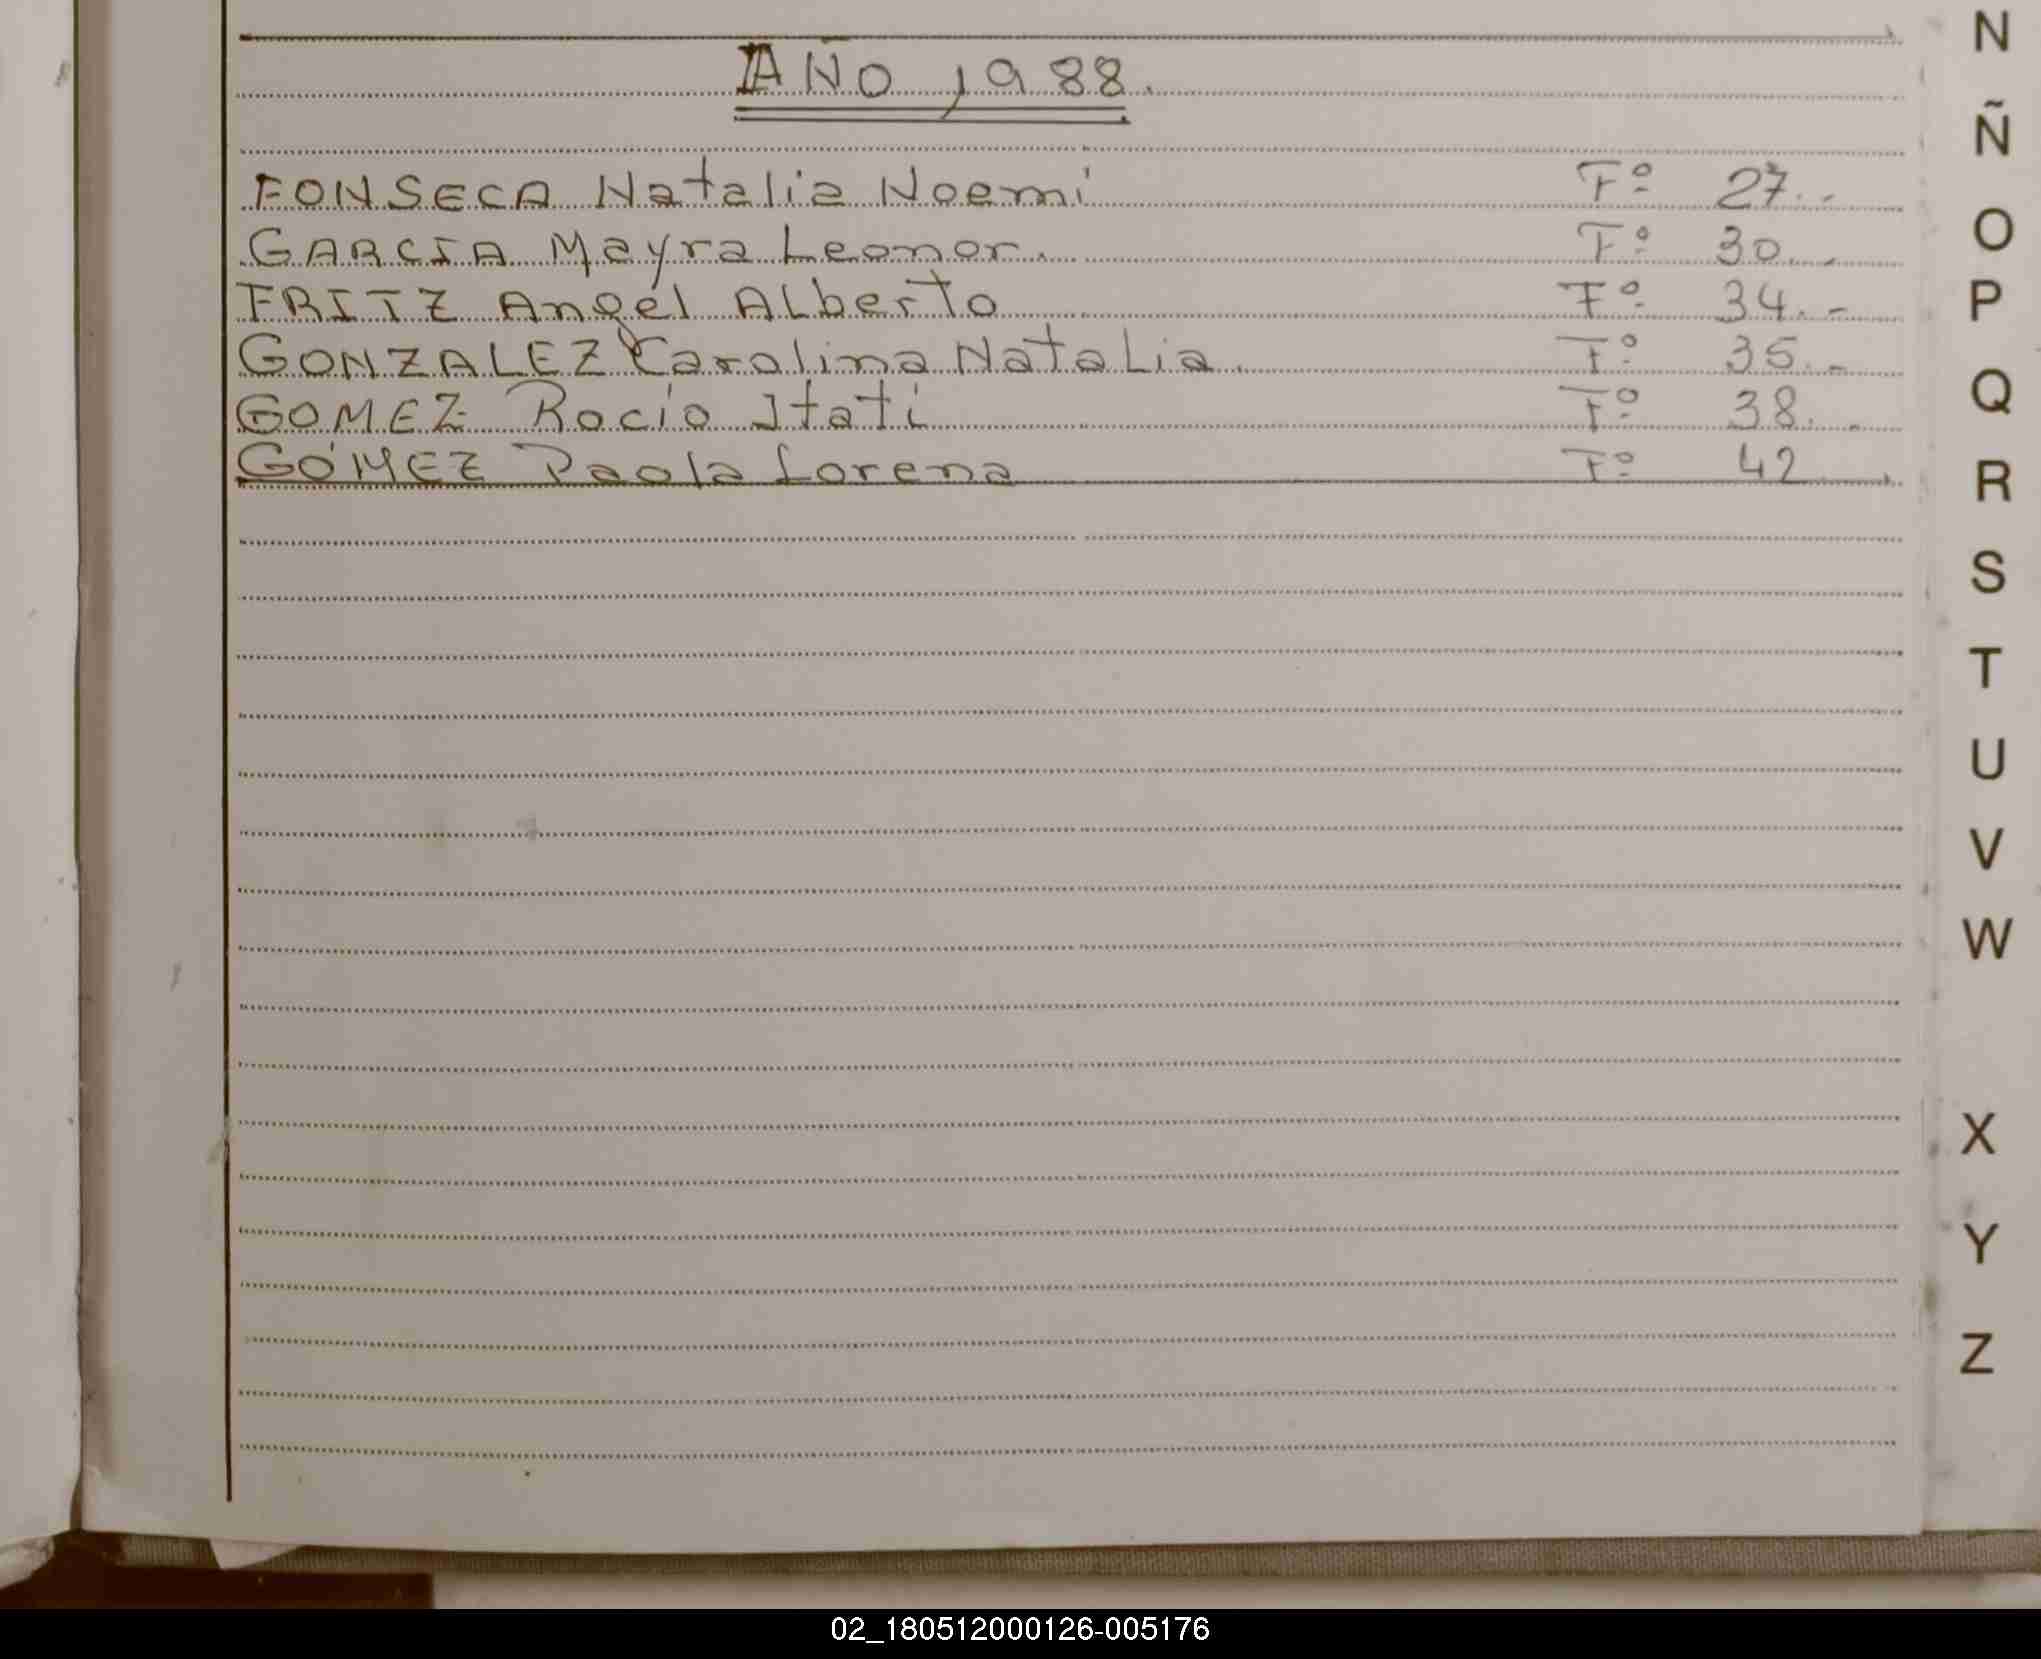 AÑO 1988.
FONSECA Natalia Noemi Fº 27.-
GARCIA Mayra Leonor. Fº 30.-
FRITZ Angel ALberto Fº 34.-
GONZALEZ Carolina NataLia. Fº 35.-
GOMEZ Rocio Itati Fº 38.-
GÓMEZ Paola Lorena Fº 42
N
Ñ
O
P
Q
R
S
T
U
V
W
X
Y
Z
02_180512000126-005176